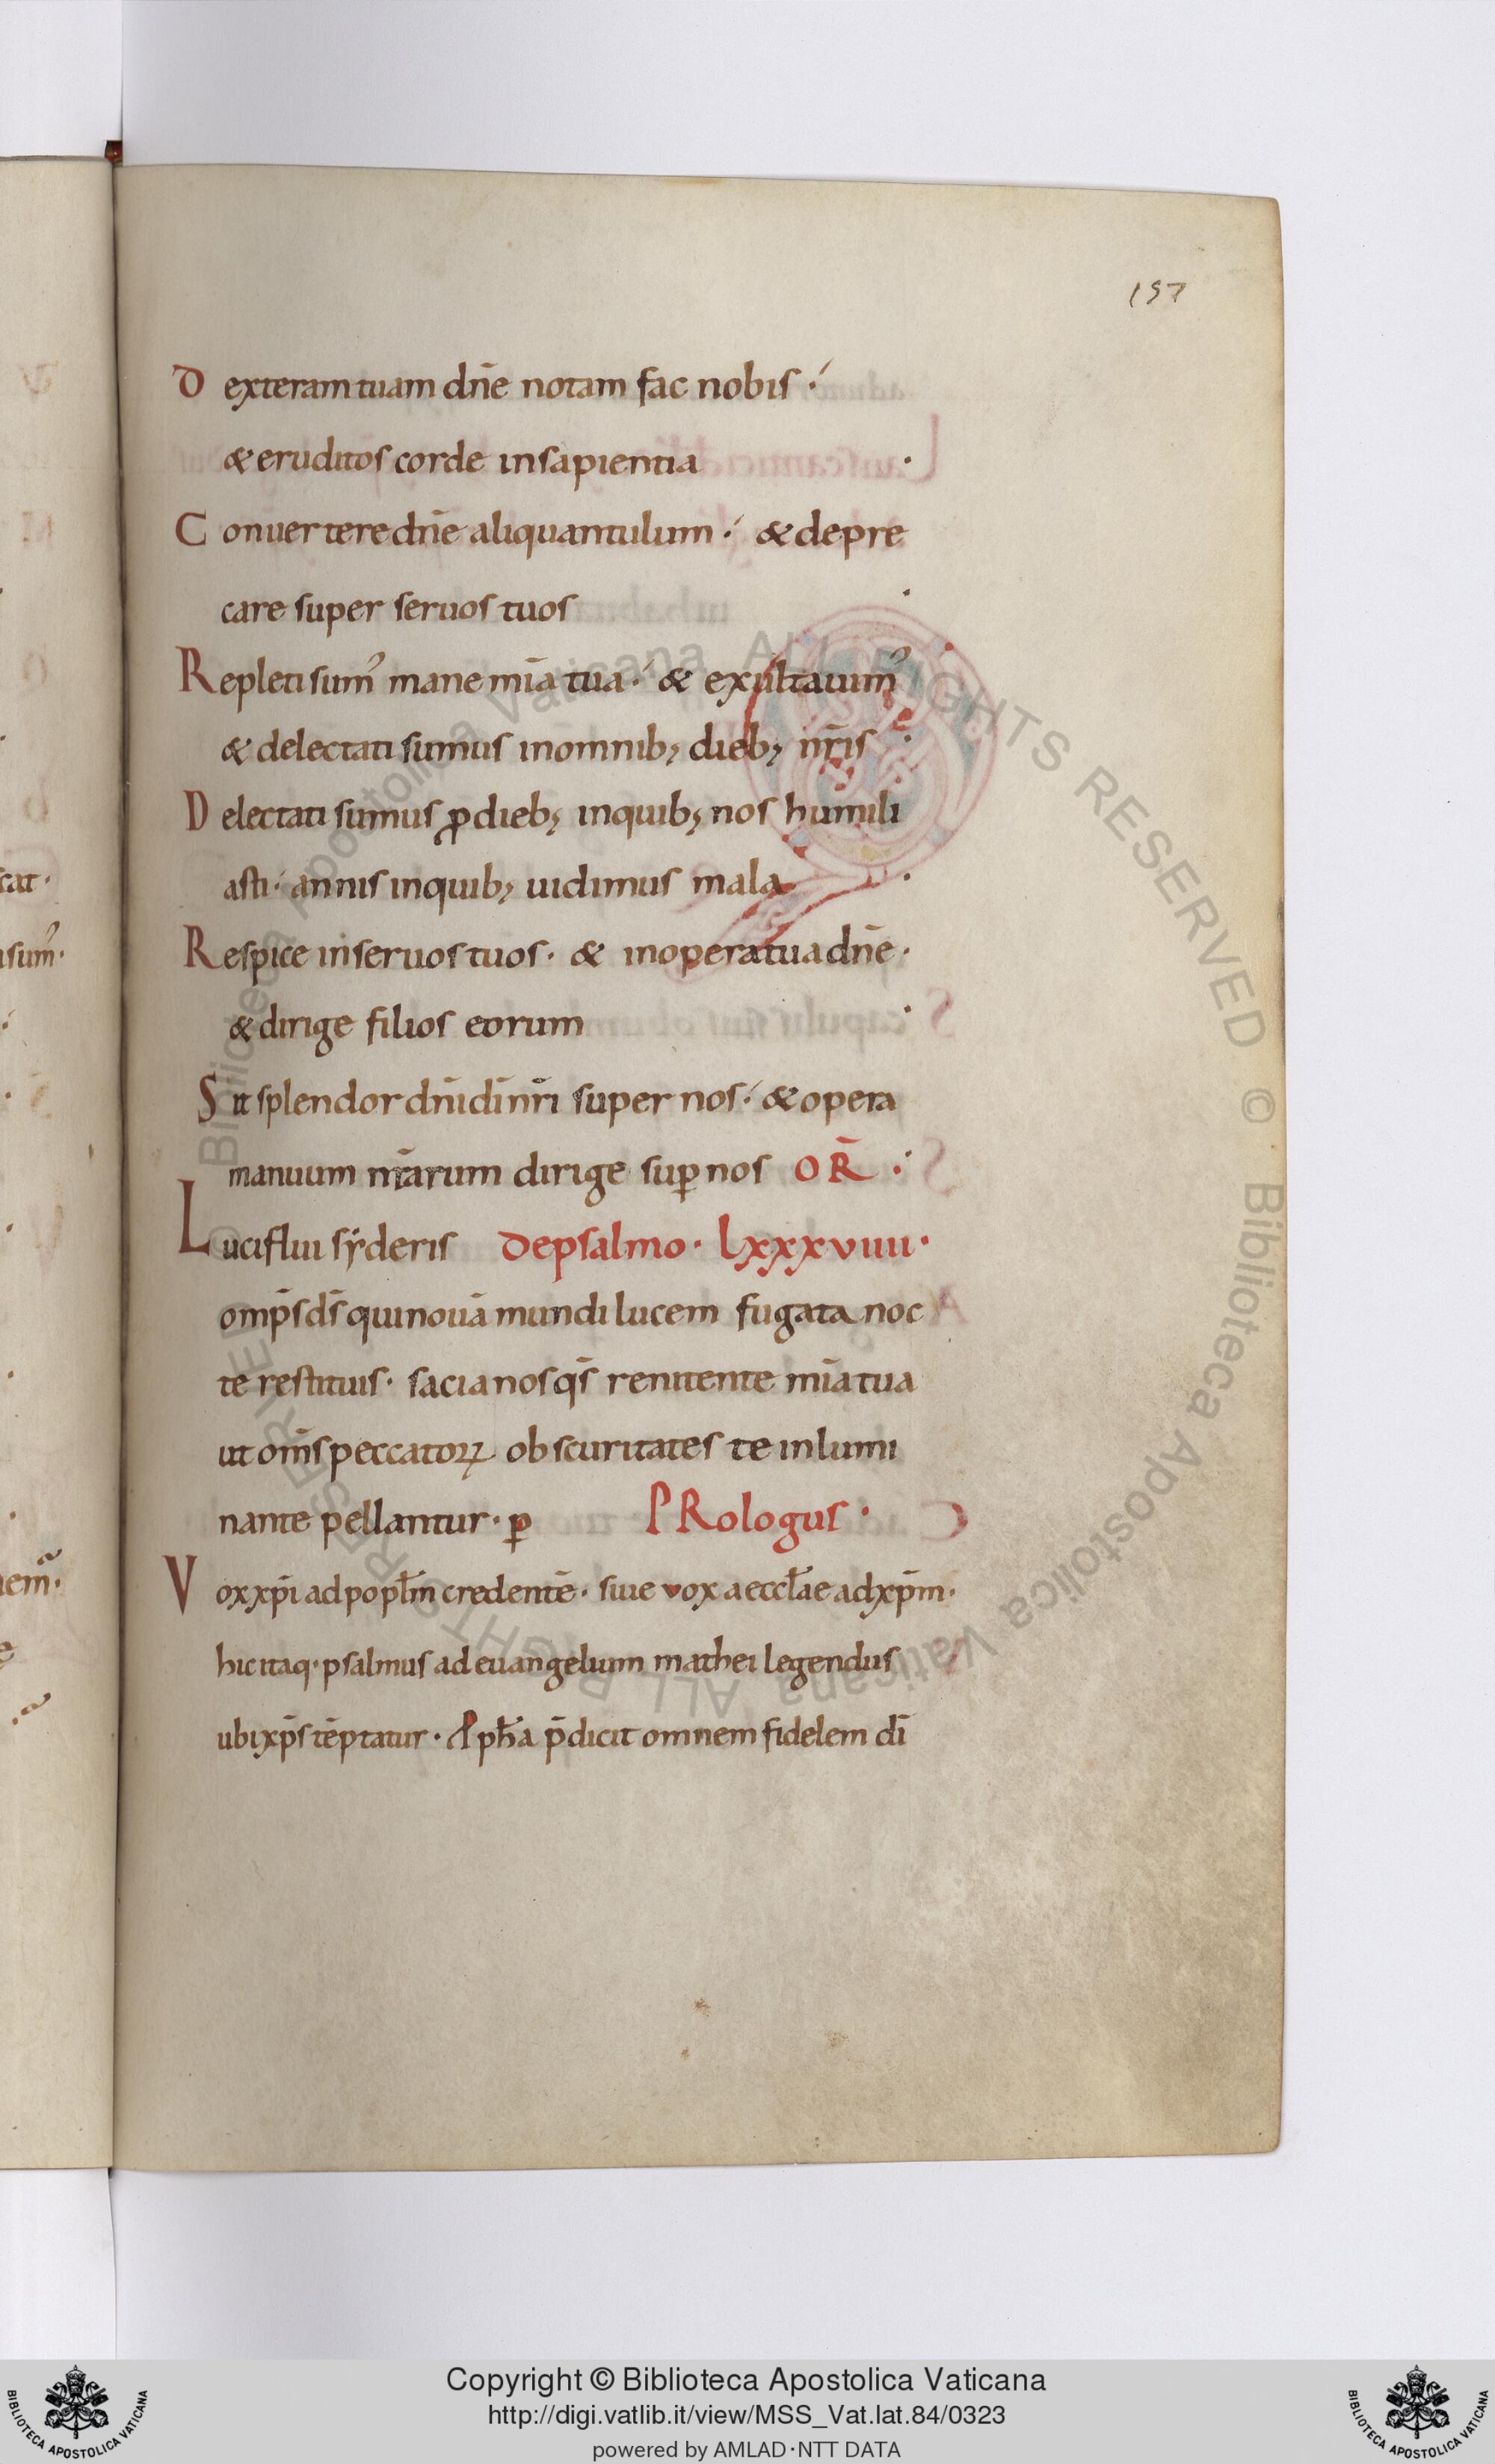 157
Dexteram tuam dn̄e notam fac nobis ·́
& eruditos corde in sapientia ·
Conuertere dn̄e aliquantulum ·́ & depre
care super seruos tuos ·
Repleti sum᾽ mane mīa tua ·́ & exultauim᾽
& delectati sumus in omnib; dieb; nr̄is ·
Delectati sumus ꝓ dieb; in quib; nos humili
asti ·́ annis in quib; uidimus mala ·
Respice in seruos tuos · & in opera tua dn̄e ·
& dirige filios eorum ·
Sit splendor dn̄i dī nr̄i super nos ·́ & opera
manuum nr̄arum dirige suꝑ nos OR̄ ·́
Luciflui sẏderis De psalmo · lxxxviiii ·
omp̄s ds̄ qui nouā mundi lucem fugata noc
te restituis · sacia nos qs̄ renitente mīa tua
ut om̄s peccatoꝝ obscuritates te inlumi
nante pellantur · ꝑ PRologus ·
Vox xp̄i ad popłm credentē · siue vox aeccłae ad xp̄m ·
hic itaq· psalmus ad euangelium mathei legendus
ubi xp̄s tēptatur · Aꝉ ph̄a p̄dicit omnem fidelem dī
Copyright © Biblioteca Apostolica Vaticana
http://digi.vatlib.it/view/MSS_Vat.lat.84/0323
powered by AMLAD·NTT DATA
BIBLIOTECA APOSTOLICA VATICANA
BIBLIOTECA APOSTOLICA VATICANA
© Biblioteca Apostolica Vaticana ALL RIGHTS RESERVED © Biblioteca Apostolica Vaticana ALL RIGHTS RESERVED